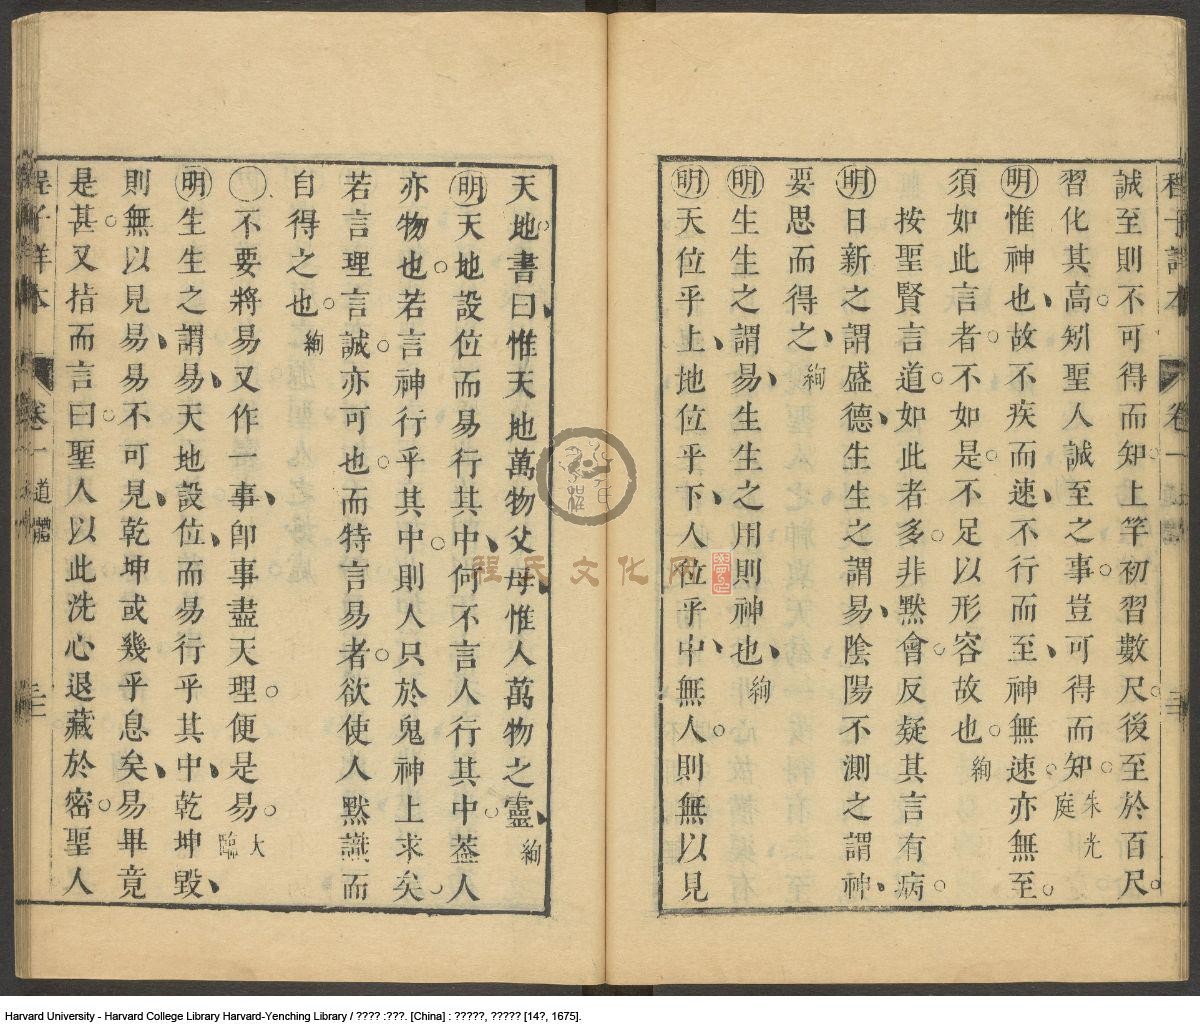 誠至則不可得而知上竿初習數尺後至於百尺
習化其高矧聖人誠至之事豈可得而知朱光庭
㊔惟神也故不疾而速不行而至神無速亦無至
須如此言者不如是不足以形容故也絢
按聖賢言道如此者多非默會反疑其言有病
明日新之謂盛德生生之謂易陰陽不測之謂神
要思而得之絢
明生生之謂易生生之用則神也絢
明天位乎上地位乎下人位乎中無人則無以見
天地書曰惟天地萬物父母惟人萬物之靈絢
明天地設位而易行其中何不言人行其中葢人
亦物也若言神行乎其中則人只於鬼神上求矣
若言理言誠亦可也而特言易者欲使人默識而
自得之也絢
不要將易又作一事卽事盡天理便是易大臨
明生生之謂易天地設位而易行乎其中乾坤毀
則無以見易易不可見乾坤或幾乎息矣易畢竟
是甚又指而言曰聖人以此洗心退藏於密聖人
卷一 道體
程氏文化网
Harvard University - Harvard College Library Harvard-Yenching Library / ???? :???. [China] : ?????, ????? [14?, 1675].